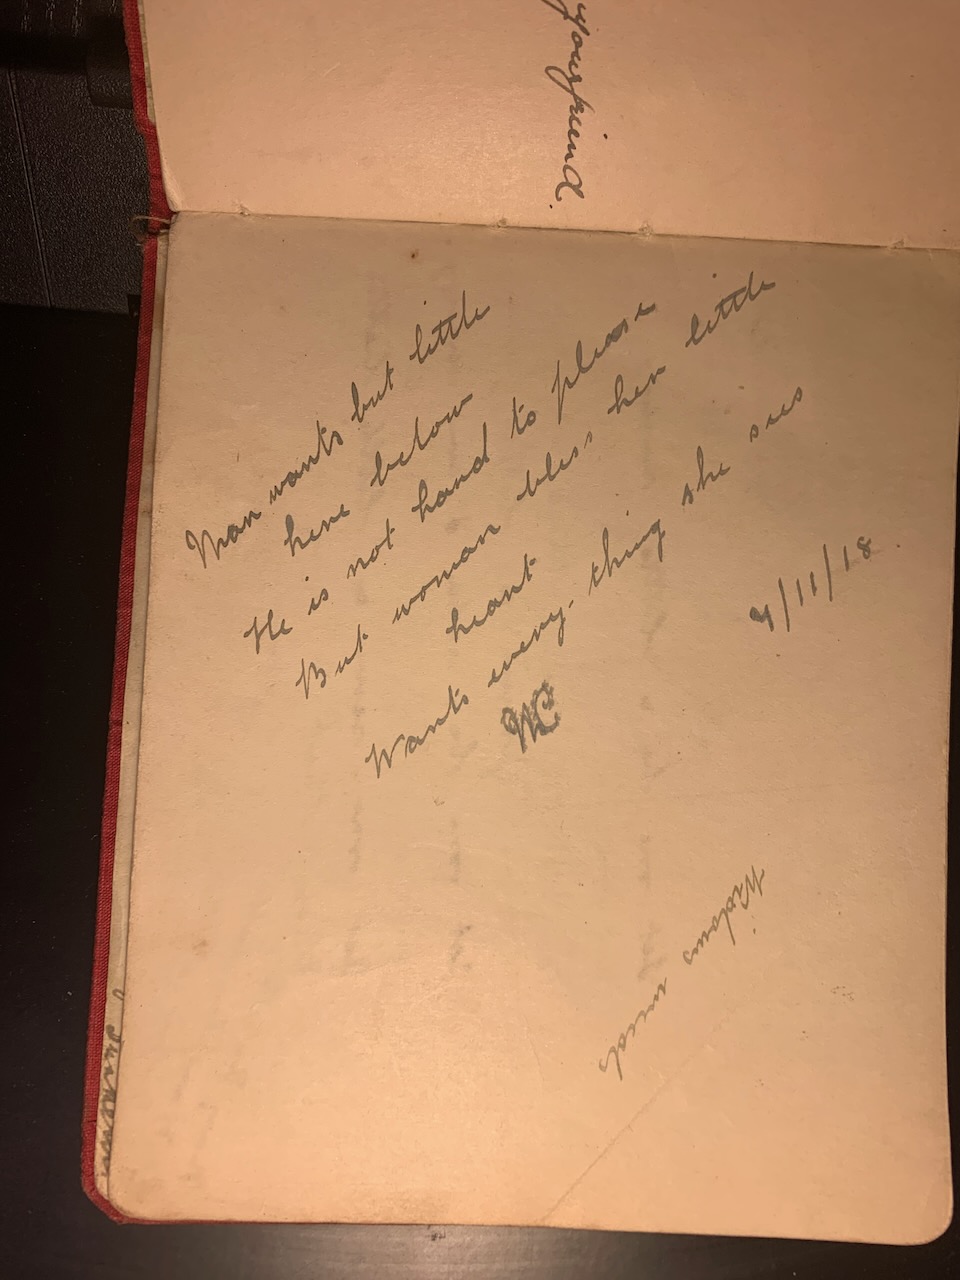 your friend.
Man wants but little
here below
He is not hard to please
But woman bless her little
heart
Wants every-thing she sees
MC
4/11/18